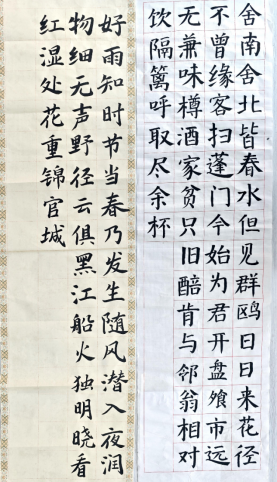 舍南舍北皆春水但见群鸥日日来花径
不曾缘客扫蓬门今始为君开盘飧市远
无兼味樽酒家贫只旧醅肯与邻翁相对
饮隔篱呼取尽余杯
好雨知时节当春乃发生随风潜入夜润
物细无声野径云俱黑江船火独明晓看
红湿处花重锦官城